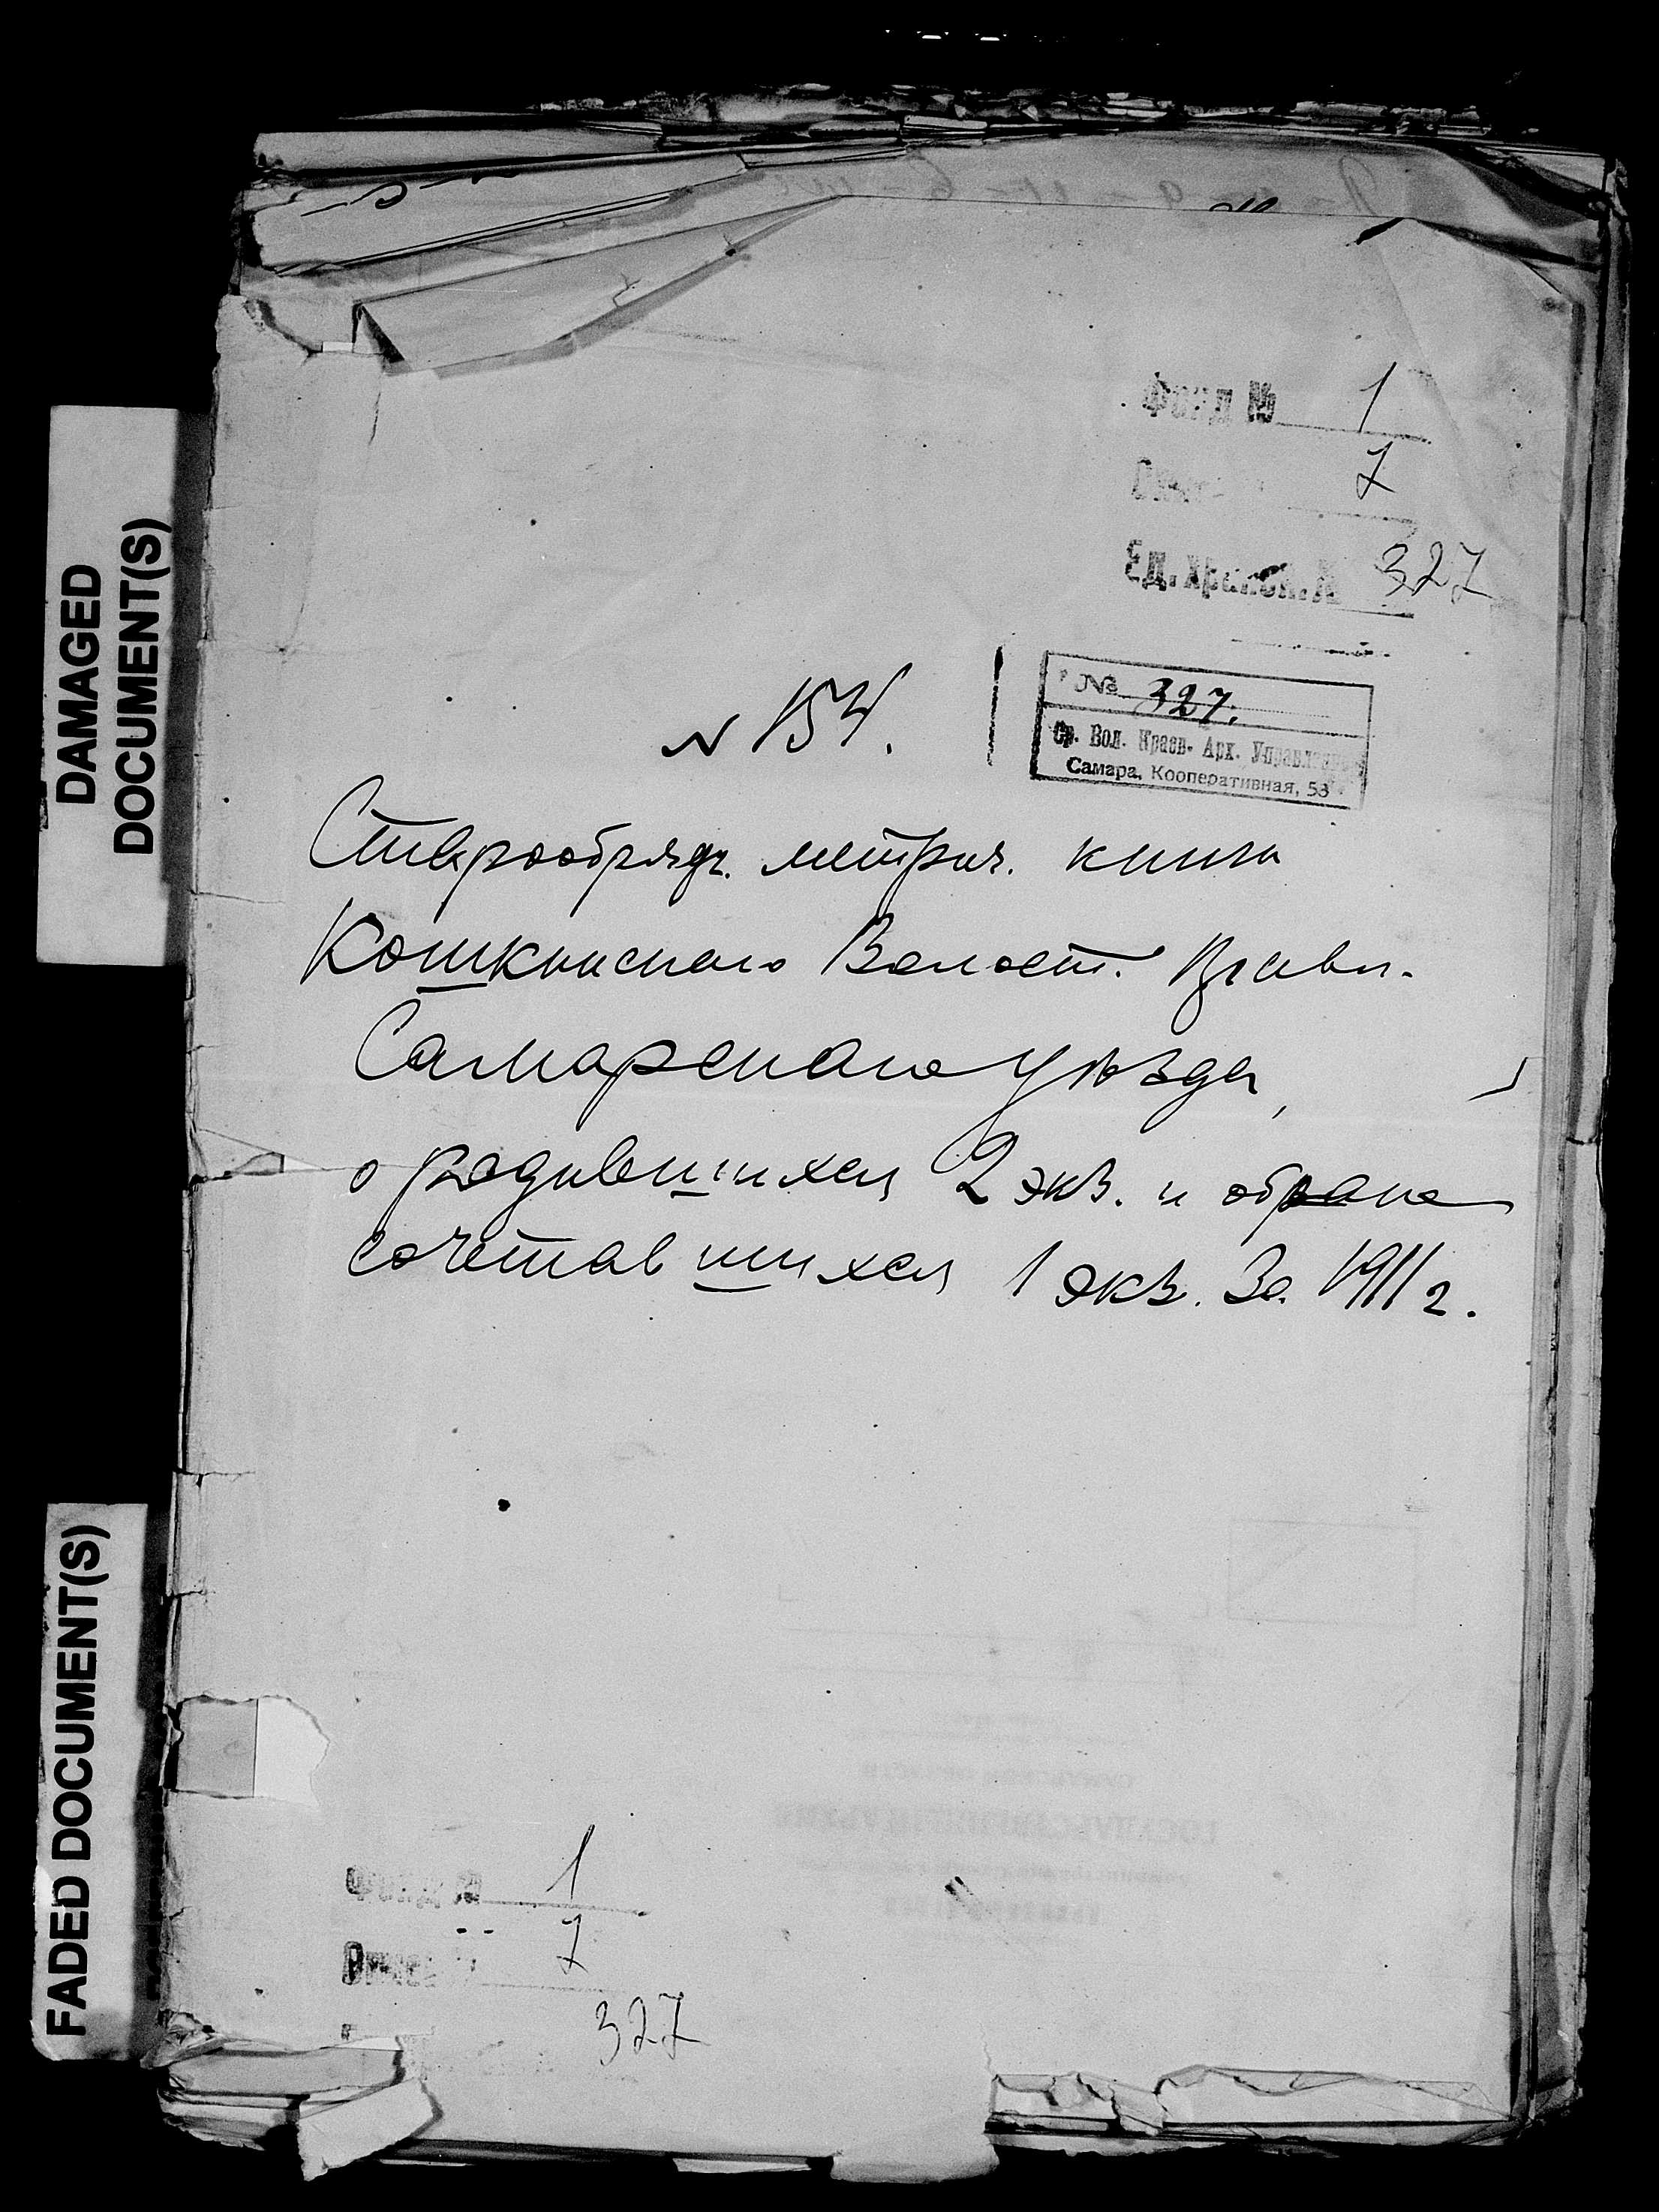 DAMAGED
DOCUMENT(S)
FADED DOCUMENT(S)
Фонд № 1
Опись 7
Ед. хранен. № 327
№ 327.
Ср. Вол. Краев. Арх. Управление
Самара, Кооперативная, 53
N 154.
Старообрядч. метрич. книги
Кошкинского Волост. Правл.
Самарского уѣзда,
о родившихся 2 экз. и о брако
сочетавшихся 1 экз. За 1911 г.
Фонд № 1
Опись 7
327